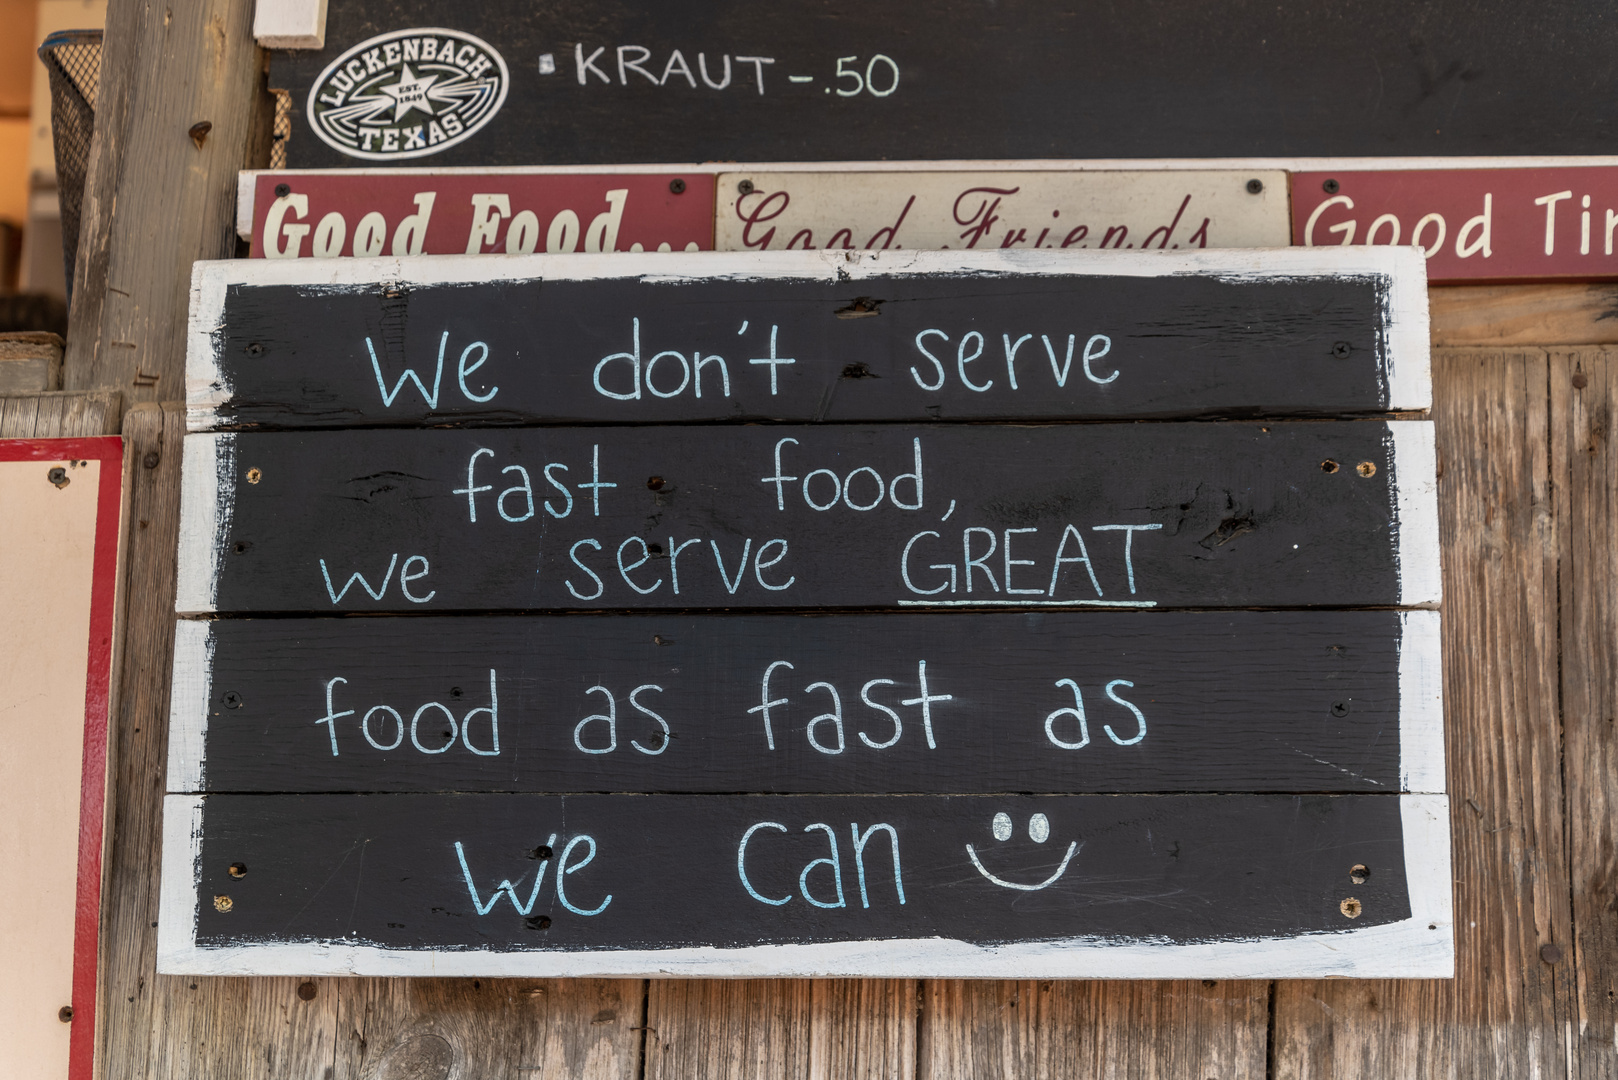 LUCKENBACH
EST.
1849
TEXAS
KRAUT -.50
Good Food...
Good Friends
Good
We don't serve
fast food,
we serve GREAT
food as fast as
we can